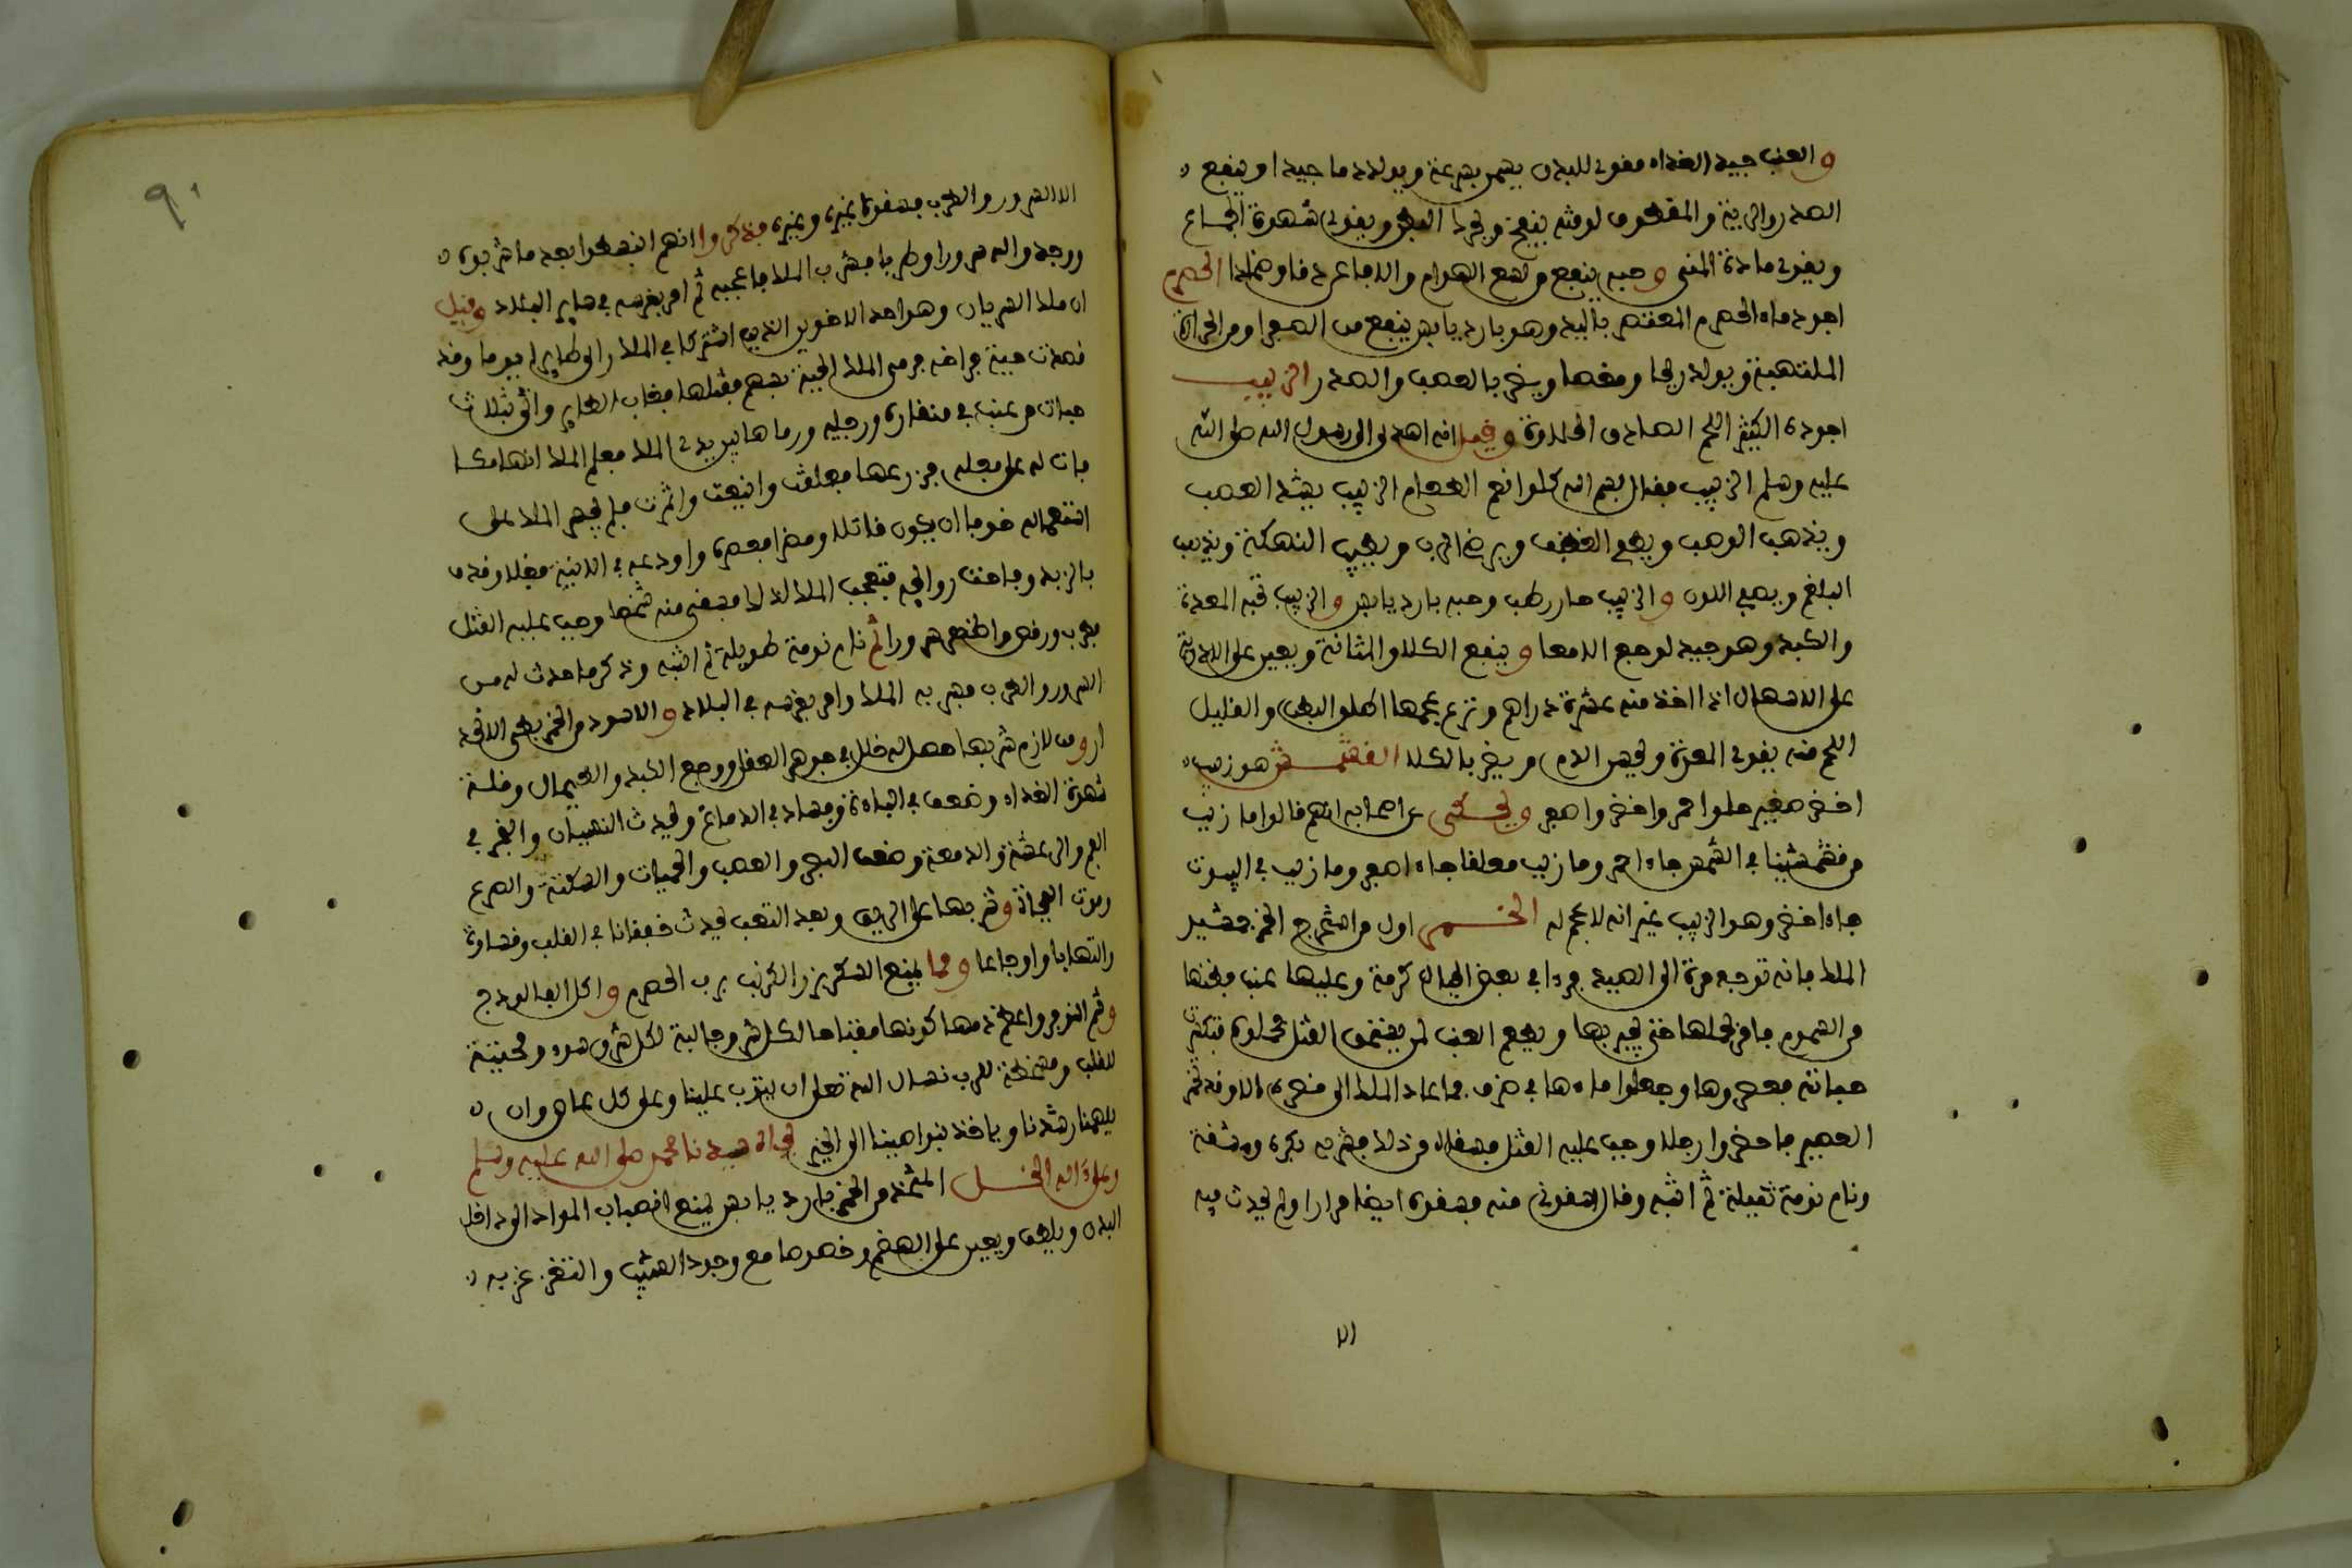 والعنب جيد الغداء مقوي للبدن يسمن بسرعة ويولد دما جيدا وينفع
الصدر والرية والمقطوف لوقته ينفخ ويحرك البطن ويقوي شهوة الجماع
ويقوي مادة المني وحبه ينفع من لسع الهوام والافاعي الحصرم
اجوده ماء الحصرم المعتصر باليد وهو بارد يابس ينفع من الصفرا ومن الحرارة
الملتهبة ويولد ريحا ومغصا ويضر بالعصب والصدر الزبيب
اجوده الكثير اللحم الصادق الحلاوة وقيل انه اهدي الى رسول الله صلى الله
عليه وسلم الزبيب فقال بسم الله كلوا نعم الطعام الزبيب يشد العصب
ويذهب الوصب ويطفي الغضب ويرضي الرب ويطيب النهكة ويذيب
البلغم ويصفي اللون والزبيب حار رطب وحبه بارد يابس والزبيب تحبه المعدة
والكبد وهو جيد لوجع الامعا وينفع الكلا والمثانة ويعين على الادوية
على الاسهال اذا اخذ منه عشرة دراهم ونزع عجمها اطلق البطن والقليل
اللحم منه يقوي المعدة ويحبس الدم ويضر بالكلا القشمش هو زبيب
اخضر صغير حلو احمر واخضر واصفر ويحكى عن اصحابه انهم قالوا ما زبب
من قشمشينا في الشمس جاء احمر وما زبب معلقا جاء اصفر وما زبب في البيوت
جاء اخضر وهو الزبيب غير انه لا عجم له الخمر اول من استخرج الخمر جمشيد
الملك فانه توجه مرة الى الصيد فرءا في بعض الجبال كرمة وعليها عنب فظنها
من السموم فامر بحملها حتى يجربها ويطعم العنب لمن يستحق القتل فحملوه فتكسرت
حباته فعصروها وجعلوا ماءها في ظرف فما عاد الملك الى مقره الا وقد تخمر
العصير فاحضروا رجلا وجب عليه القتل فسقاه من ذلك فشربه بكره ومشقة
ونام نومة ثقيلة ثم انتبه وقال اسقوني منه فسقوه ايضا مرارا ولم يحدث فيه
الا
٩٠
الا السرور والطرب فسقوا غيره وغيره فذكروا انهم انبسطوا بعد ما شربوه
ووجدوا سرورا وطربا فشرب الملك فاعجبه ثم امر بغرسه في ساير البلاد وقيل
ان ملك السريان وهو احد الاخوين الذين اشتركا في الملك راى طايرا يوما وقد
قصدت حية فراخه فرمى الملك الحية بسهم فقتلها فغاب الطاير واتى بثلاث
حبات من عنب في منقاره ورجليه ورماها بين يدي الملك فعلم الملك انها مكافا
فات له على فعله فزرعها فعلقت واينعت واثمرت فلم يجسر الملك على
استعماله خوفا ان يكون قاتلا ومضرا فعصره واودعه في الانية فغلا وقذف
بالزبد وفاحت روايحه فتعجب الملك لذلك فسقى منه شخصا وجب عليه القتل
فطرب ورقص واظهر سرورا ثم نام نومة طويلة ثم انتبه وذكر ما حدث له من
السرور والطرب فسر به الملك وامر بغرسه في البلاد والاسود من الخمر بطي الانحد
ار ومن لازم شربها حصل له خلل في جوهر العقل ووجع الكبد والطحال وقلة
شهوة الغداء وضعف في الباه وفساد في الدماغ ويحدث النسيان والبخر في
الفم والرعشة والدمعة وضعف البصر والعصب والحميات والسكتة والصرع
وموت الفجاة وشربها على الريق وبعد التعب يحدث خفقانا في القلب وقساوة
والتهابا واوجاعا ومما يمنع السكر بزر الكرنب برب الحصرم واكل الفالوذج
وشم النوفر واعظم ذمها كونها مفتاحا لكل شر وجالبة لكل سوء ومميتة
للقلب ومسخطة للرب نسال الله تعلى ان يتوب علينا وعلى كل عاص وان
يلهمنا رشدنا وياخذ بنواصينا الى الخير بجاه سيدنا محمد صلى الله عليه وسلم
وعلى ءاله الخل المتخذ من الخمر بارد يابس يمنع انصباب المواد الى داخل
البدن ويلطف ويعين على الهضم وخصوصا مع وجود الشبت والتغرغر به